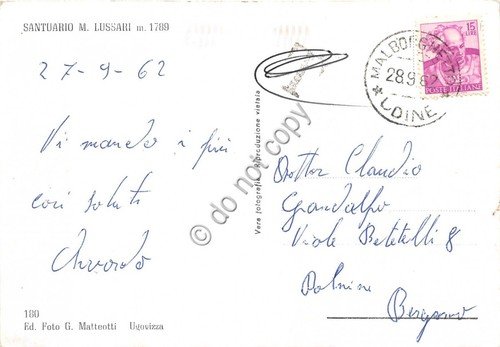 SANTUARIO M. LUSSARI m. 1789
27-9-62
Vi mando i più
cari saluti
180
Ed. Foto G. Matteotti Ugovizza
Vera fotografia - Riproduzione vietata
15
LIRE
POSTE ITALIANE
MALBORGHETTO
28.9.62
UDINE
Dottor Claudio
Grandalfo
Viale Betelli 8
Dalmine
Bergamo
do not copy